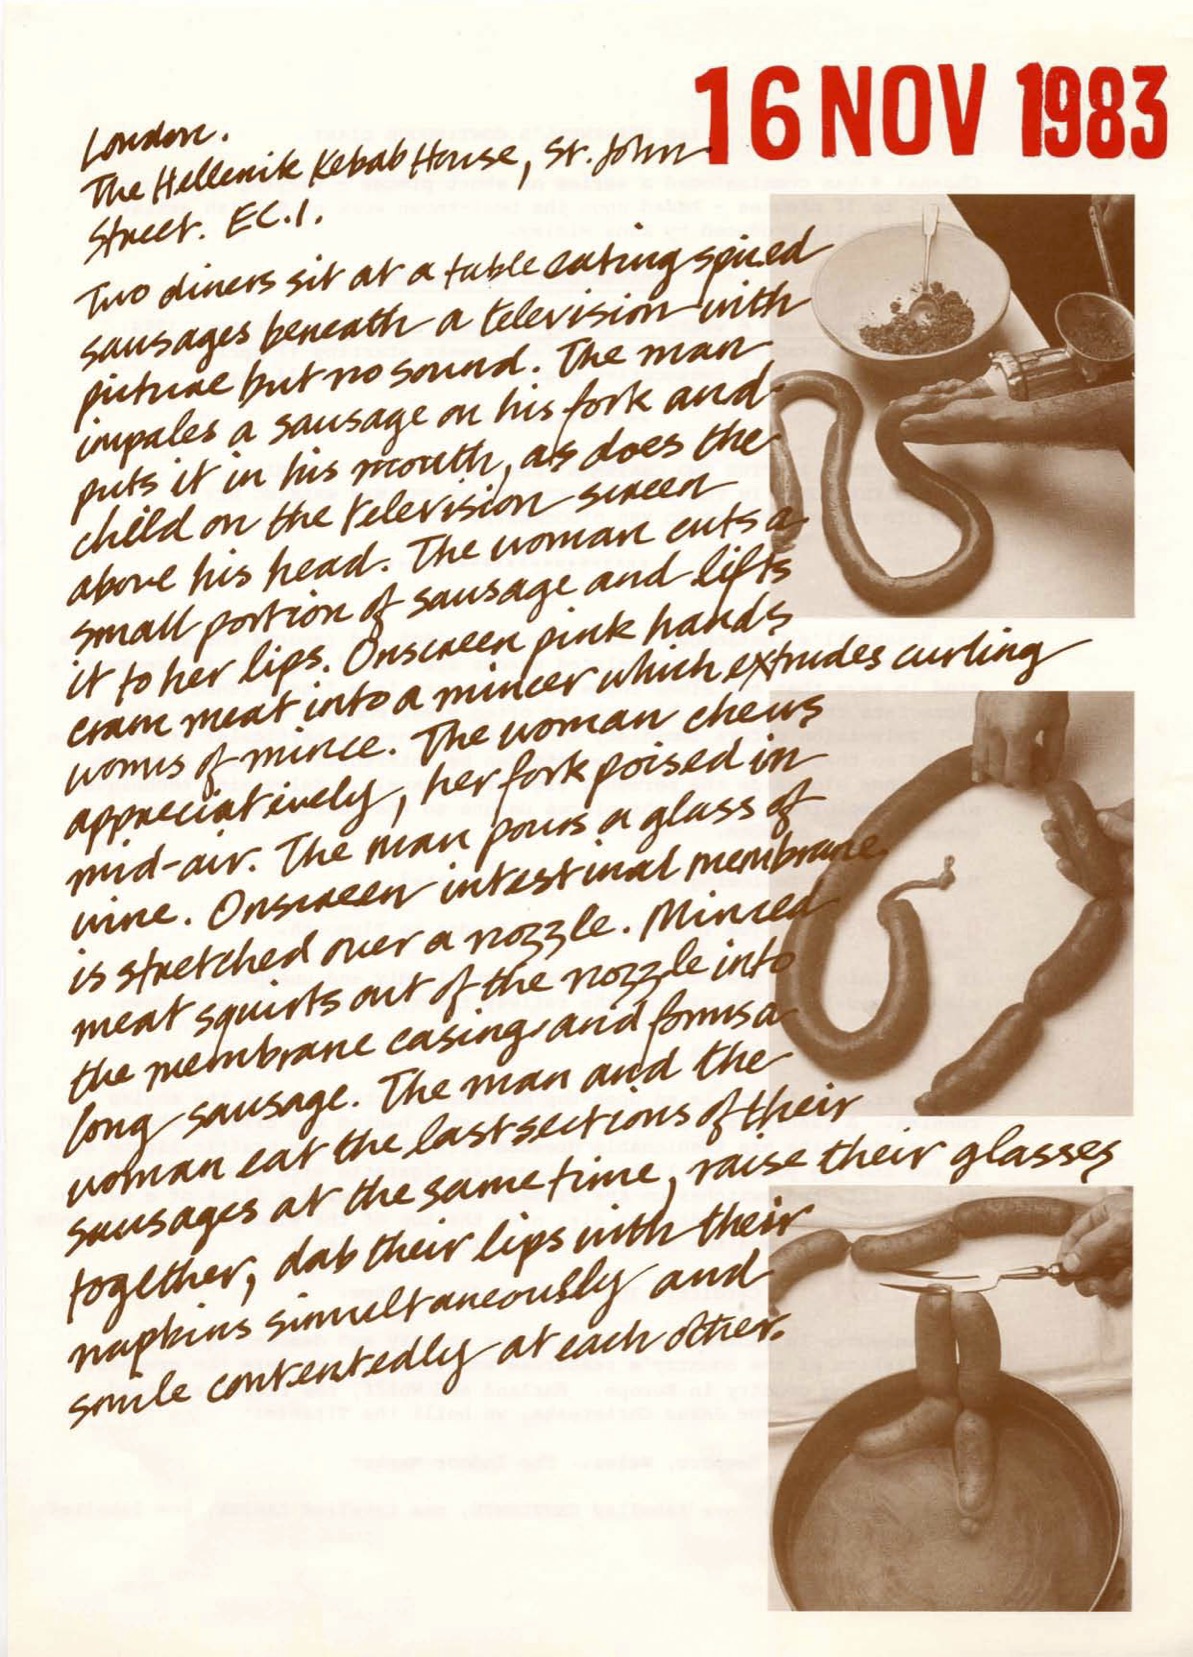 16 NOV 1983
London.
The Hellenik Kebab House, St. John
Street. EC.1.
Two diners sit at a table eating spiced
sausages beneath a television with
picture but no sound. The man
impales a sausage on his fork and
puts it in his mouth, as does the
child on the television screen
above his head. The woman cuts a
small portion of sausage and lifts
it to her lips. Onscreen pink hands
cram meat into a mincer which extrudes curling
worms of mince. The woman chews
appreciatively, her fork poised in
mid-air. The man pours a glass of
wine. Onscreen intestinal membrane
is stretched over a nozzle. Minced
meat squirts out of the nozzle into
the membrane casing and forms a
long sausage. The man and the
woman eat the last sections of their
sausages at the same time, raise their glasses
together, dab their lips with their
napkins simultaneously and
smile contentedly at each other.